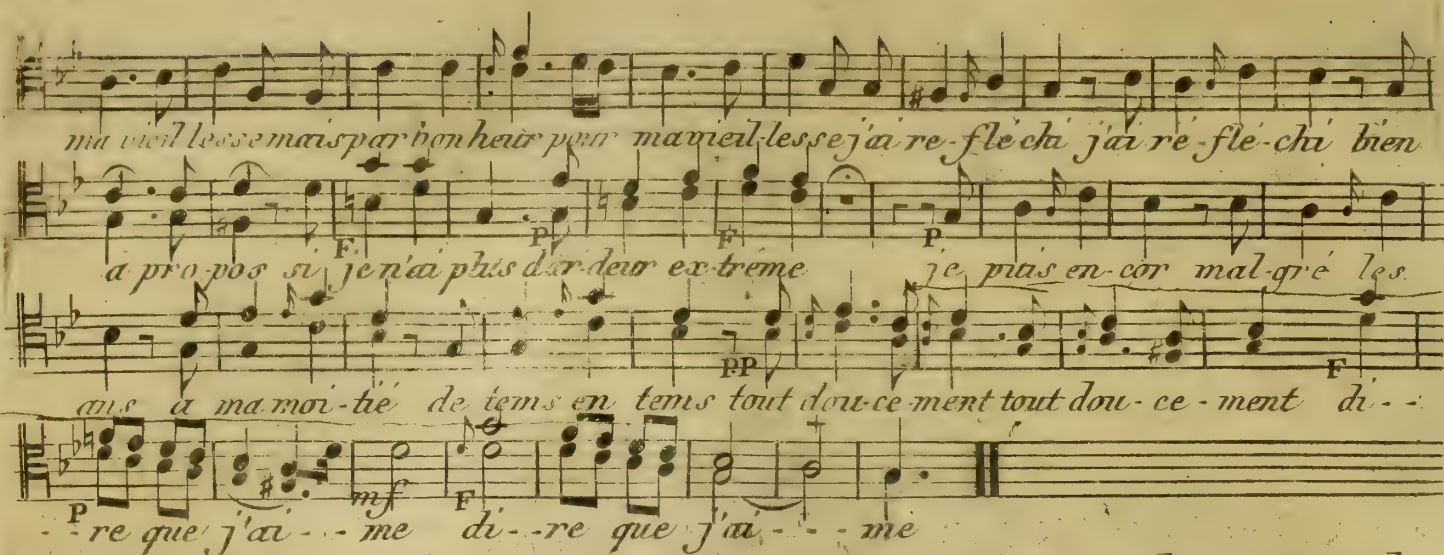 ma vieil lesse mais par bon heur pour ma vieil-les-se j'ai re-flé chi j'ai ré-flé-chi bien
F. P. F P.
à pro-pos si je n'ai plus d'ar-deur ex-trême je puis en-cor mal-gré les
PP F
ans à ma moi-tié de tems en tems tout dou-ce-ment tout dou-ce-ment di--
P mf F
--re que j'ai--me di--re que j'ai---me